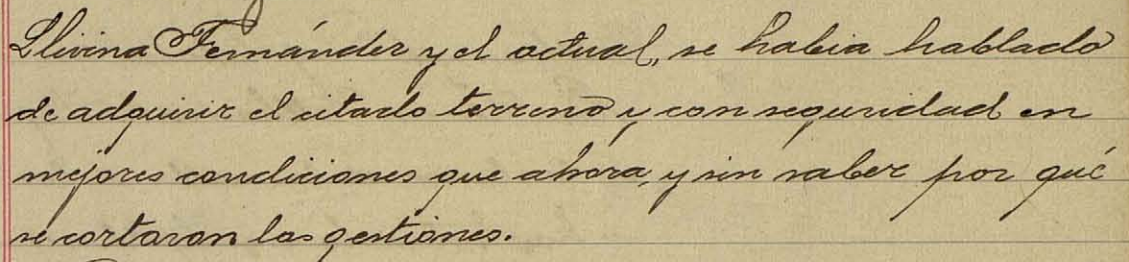 Llivina Fernández y el actual, se habia hablado
de adquirir el citado terreno y con seguridad en
mejores condiciones que ahora, y sin saber por qué
se cortaron las gestiones.